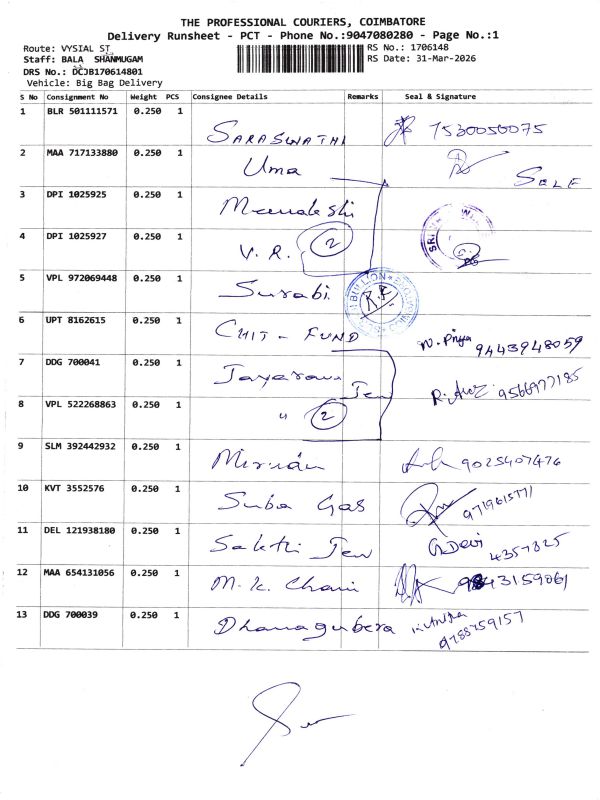 THE PROFESSIONAL COURIERS, COIMBATORE
Delivery Runsheet - PCT - Phone No.:9047080280 - Page No.:1
Route: VYSIAL ST
RS No.: 1706148
Staff: BALA SHANMUGAM
RS Date: 31-Mar-2026
DRS No.: DCJB170614801
Vehicle: Big Bag Delivery
S No Consignment No Weight PCS Consignee Details Remarks Seal & Signature
1 BLR 501111571 0.250 1 SARASWATHI 7530050075
2 MAA 717133880 0.250 1 Uma SELF
3 DPI 1025925 0.250 1 Meenakshi
4 DPI 1025927 0.250 1 V. R. 2 SRI
5 VPL 972069448 0.250 1 Surabi BULLION R.K
6 UPT 8162615 0.250 1 CHIT - FUND N. Priya 9443948059
7 DDG 700041 0.250 1 Jayaram Jew 9566977185
8 VPL 522268863 0.250 1 " 2
9 SLM 392442932 0.250 1 9025407476
10 KVT 3552576 0.250 1 Suba Gas
11 DEL 121938180 0.250 1 Sakthi Jew G. Devi 4357825
12 MAA 654131056 0.250 1 M. K. Chain 9843159061
13 DDG 700039 0.250 1 Dhanagubera 9788759157